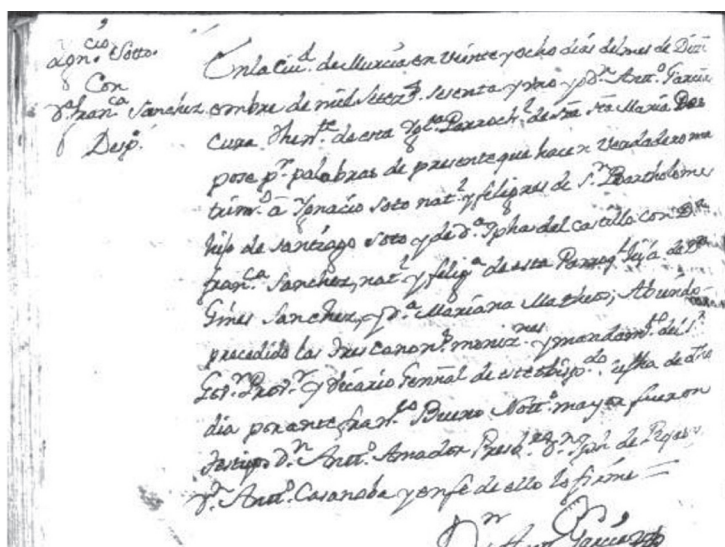 Ygn.cio Sotto.
Con
D.a Fran.ca Sanchez
Desp.o
En la Ciu.d de Murcia en veinte y ocho dias del mes de Dizi
embre de mil Setez.s sesenta y uno yo D.n Antt.o Garcia
Cura Then.te de esta Ygl.a Parroch.l de Sta Maria Des
pose p.r palabras de presente que hacen verdadero ma
trim.o a Ygnacio Soto nat.l y feligres de S.n Bartholome
hijo de Santiago Soto y de D.a Jpha del Castillo con D.a
Fran.ca Sanchez, nat.l y felig.a de esta Parroq.l hija de D.n
Gines Sanchez, y D.a Mariana Matheo; Abiendo
precedido las tres canon.s moniz.nes y mandam.to del S.r
Gov.r Prov.r y Vicario General de este obisp.do su fha de dho
dia por ante Fran.co Bueno Nott.o mayor fueron
testigos D.n Antt.o Amador Presb.ro D.n Jph de Rojas y
D.n Antt.o Casanoba y en fe de ello lo firme =
D.n Antt.o Garcia